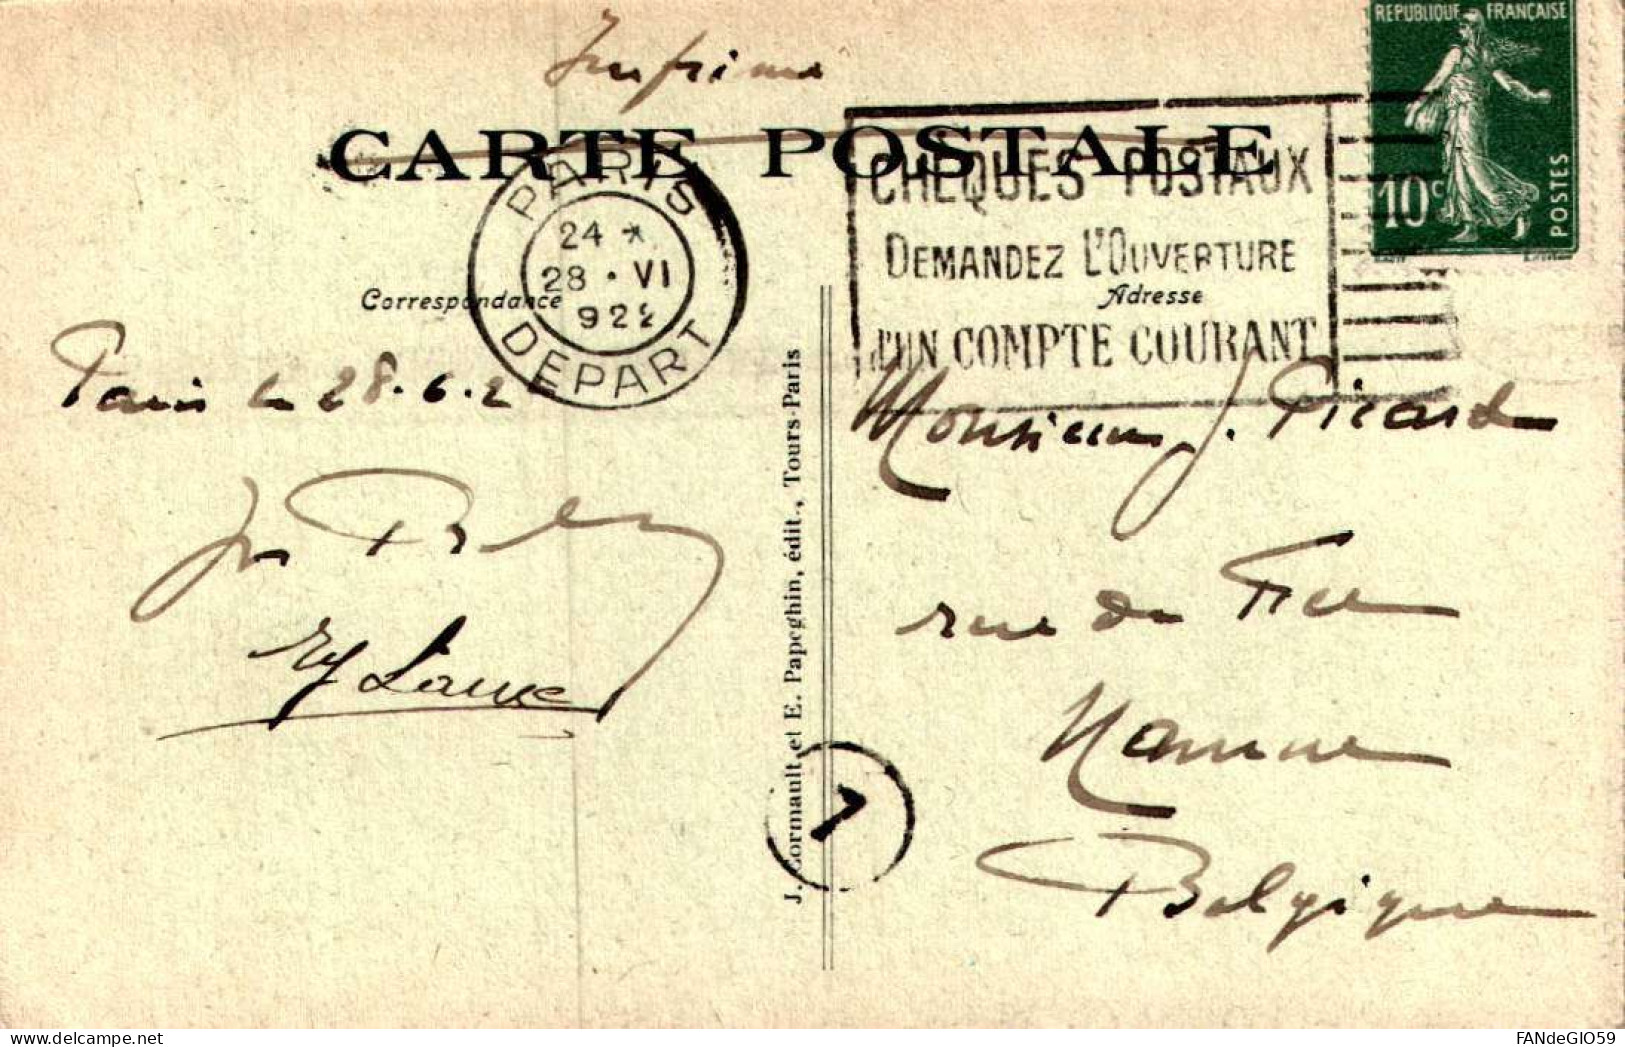 Imprimé
CARTE POSTALE
REPUBLIQUE FRANÇAISE
10c
POSTES
PARIS
24
28 · VI
922
DEPART
CHEQUES POSTAUX
DEMANDEZ L'OUVERTURE
D'UN COMPTE COURANT
Correspondance
Adresse
Paris le 28.6.2
Monsieur J. Picard
rue du
Namur
Belgique
J. Lormault et E. Papeghin, édit., Tours-Paris
7
FANdeGIO59